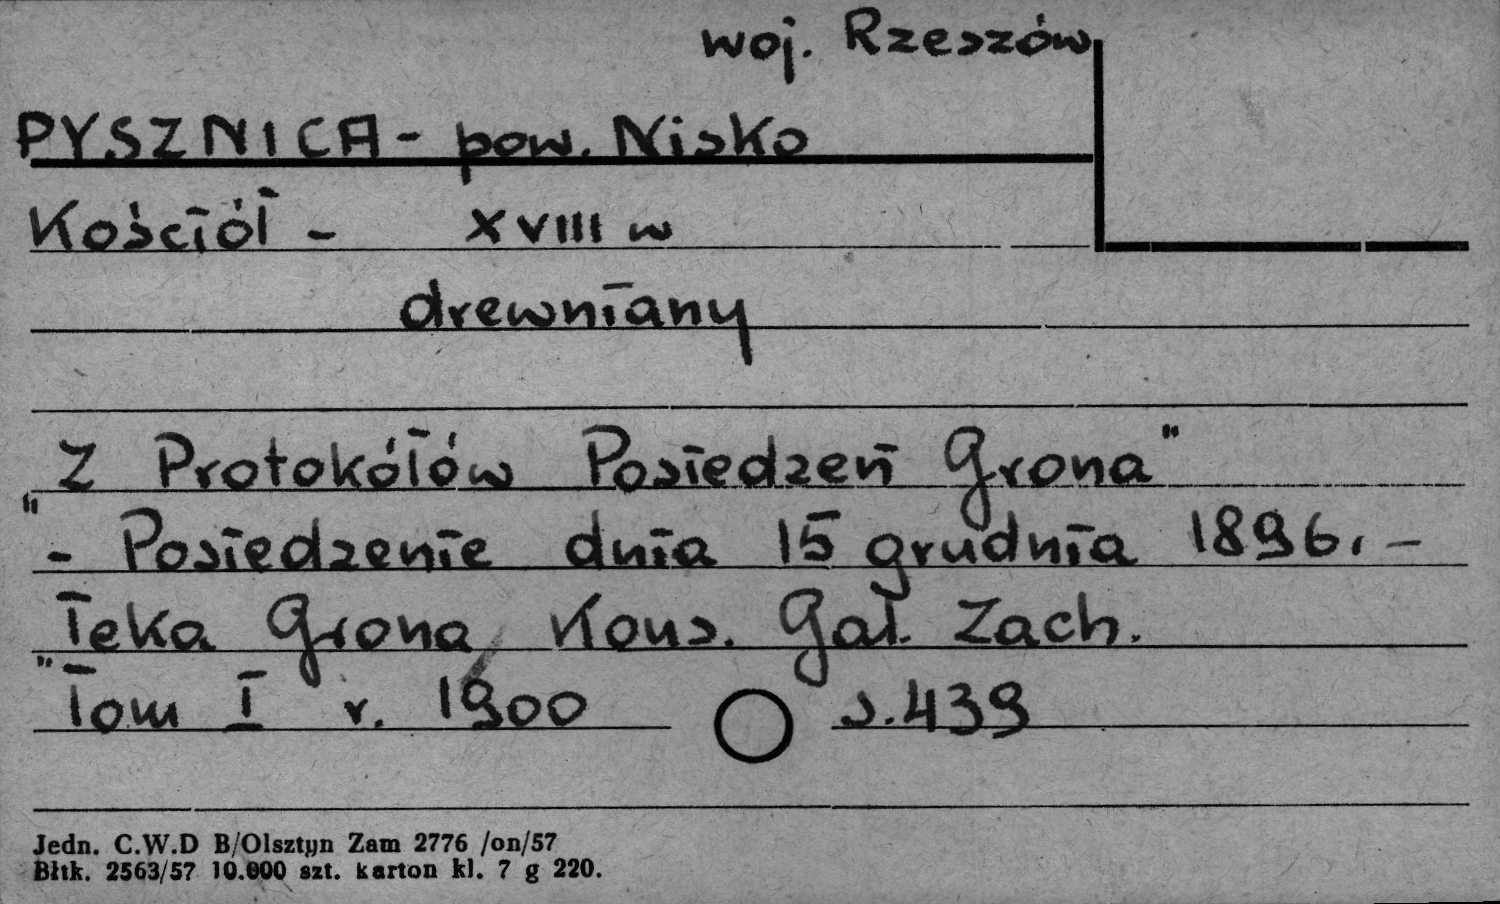 woj. Rzeszów
PYSZNICA - pow. Nisko
Kościół - XVIII w
drewniany
Z Protokółów Posiedzeń Grona"
" - Posiedzenie dnia 15 grudnia 1896. -
Teka Grona Kons. Gal. Zach.
" Tom I r. 1900 s. 439
Jedn. C.W.D B/Olsztyn Zam 2776 /on/57
Błtk. 2563/57 10.000 szt. karton kl. 7 g 220.